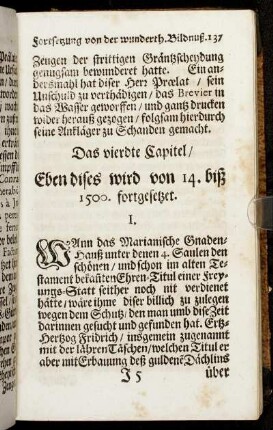 Fortsetzung von der wunderth. Bildnuß. 137
Zeugen der strittigen Gräntzscheydung
genugsam bewunderet hatte. Ein an-
dersmahl hat diser Herr Prœlat / sein
Unschuld zu verthädigen / das Brevier in
das Wasser geworffen / und gantz drucken
wider herauß gezogen / folgsam hierdurch
seine Ankläger zu Schanden gemacht.
Das vierdte Capitel /
Eben dises wird von 14. biß
1500. fortgesetzet.
I.
WAnn das Marianische Gnaden-
Hauß unter denen 4. Saulen den
schönen / und schon im alten Te-
stament bekañten Ehren-Titul einer Frey-
ungs-Statt seither noch nit verdienet
hätte / wäre ihme diser billich zu zulegen
wegen dem Schutz / den man umb dise Zeit
darinnen gesucht und gefunden hat. Ertz-
Hertzog Fridrich / insgemein zugenannt
mit der lähren Täschen / welchen Titul er
aber mit Erbauung deß guldenẽ Dächlins
J 5 über